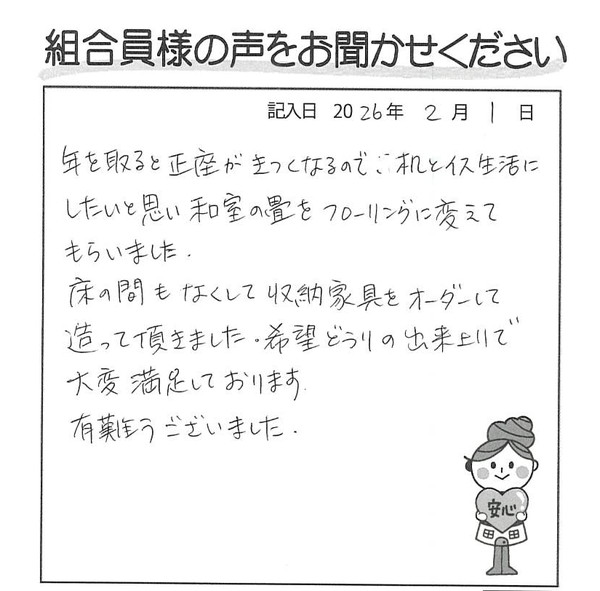 組合員様の声をお聞かせください
記入日 2026年 2月 1日
年を取ると正座がきつくなるので、机とイス生活に
したいと思い和室の畳をフローリングに変えて
もらいました.
床の間もなくして収納家具をオーダーして
造って頂きました.希望どうりの出来上りで
大変満足しております.
有難うございました.
安心